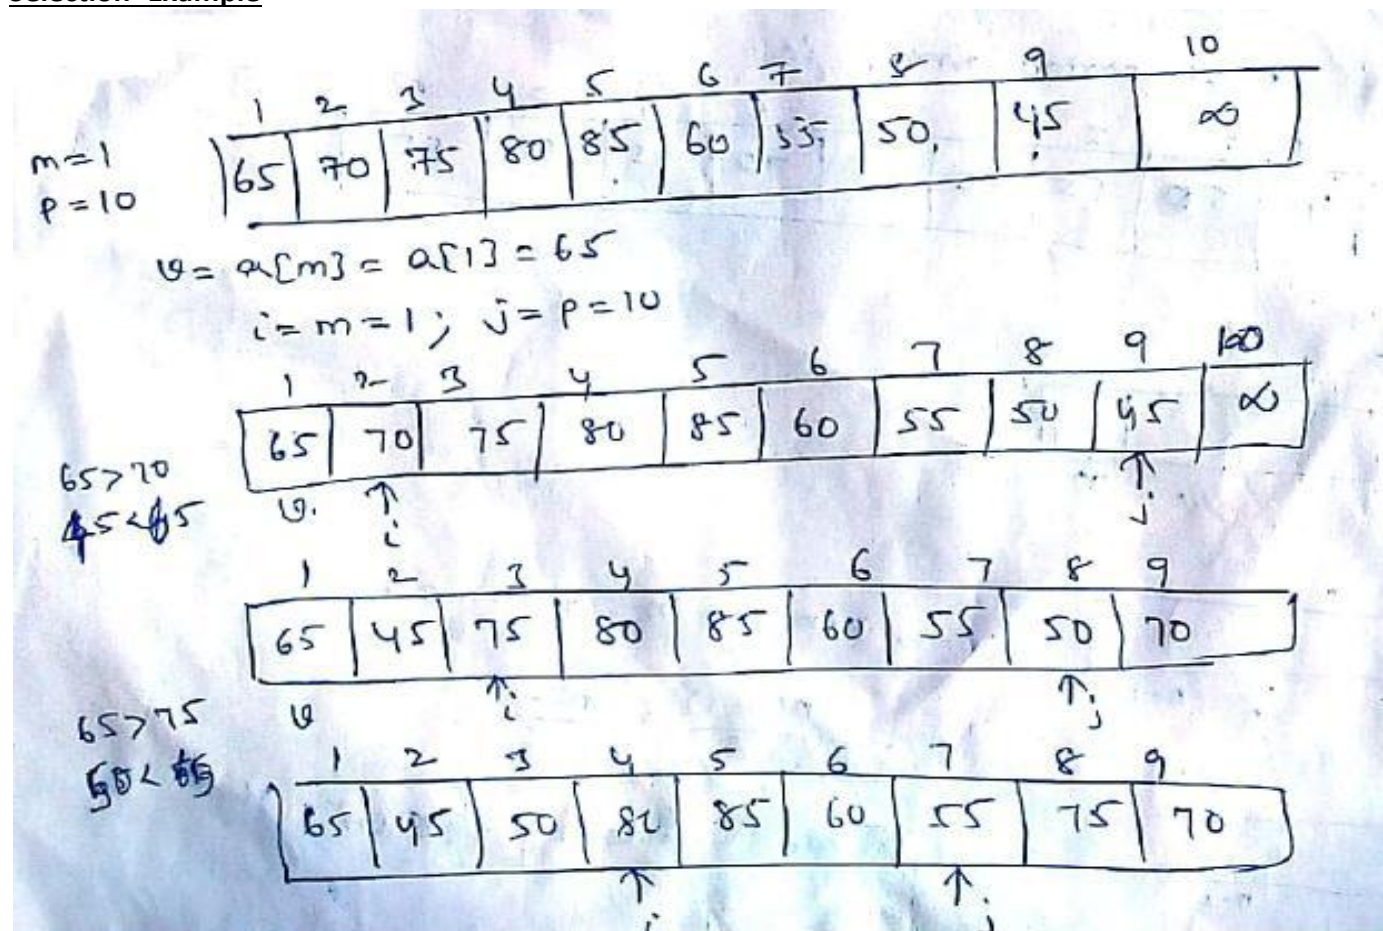 Selection Example
1 2 3 4 5 6 7 8 9 10
m=1
p=10
65 70 75 80 85 60 55 50 45 ∞
v= a[m] = a[1] = 65
i=m=1; j=p=10
1 2 3 4 5 6 7 8 9 10
65 70 75 80 85 60 55 50 45 ∞
65>70
45<65
v. ↑ ↑
i j
1 2 3 4 5 6 7 8 9
65 45 75 80 85 60 55 50 70
↑ ↑
v i j
65>75
50<65
1 2 3 4 5 6 7 8 9
65 45 50 80 85 60 55 75 70
↑ ↑
i j